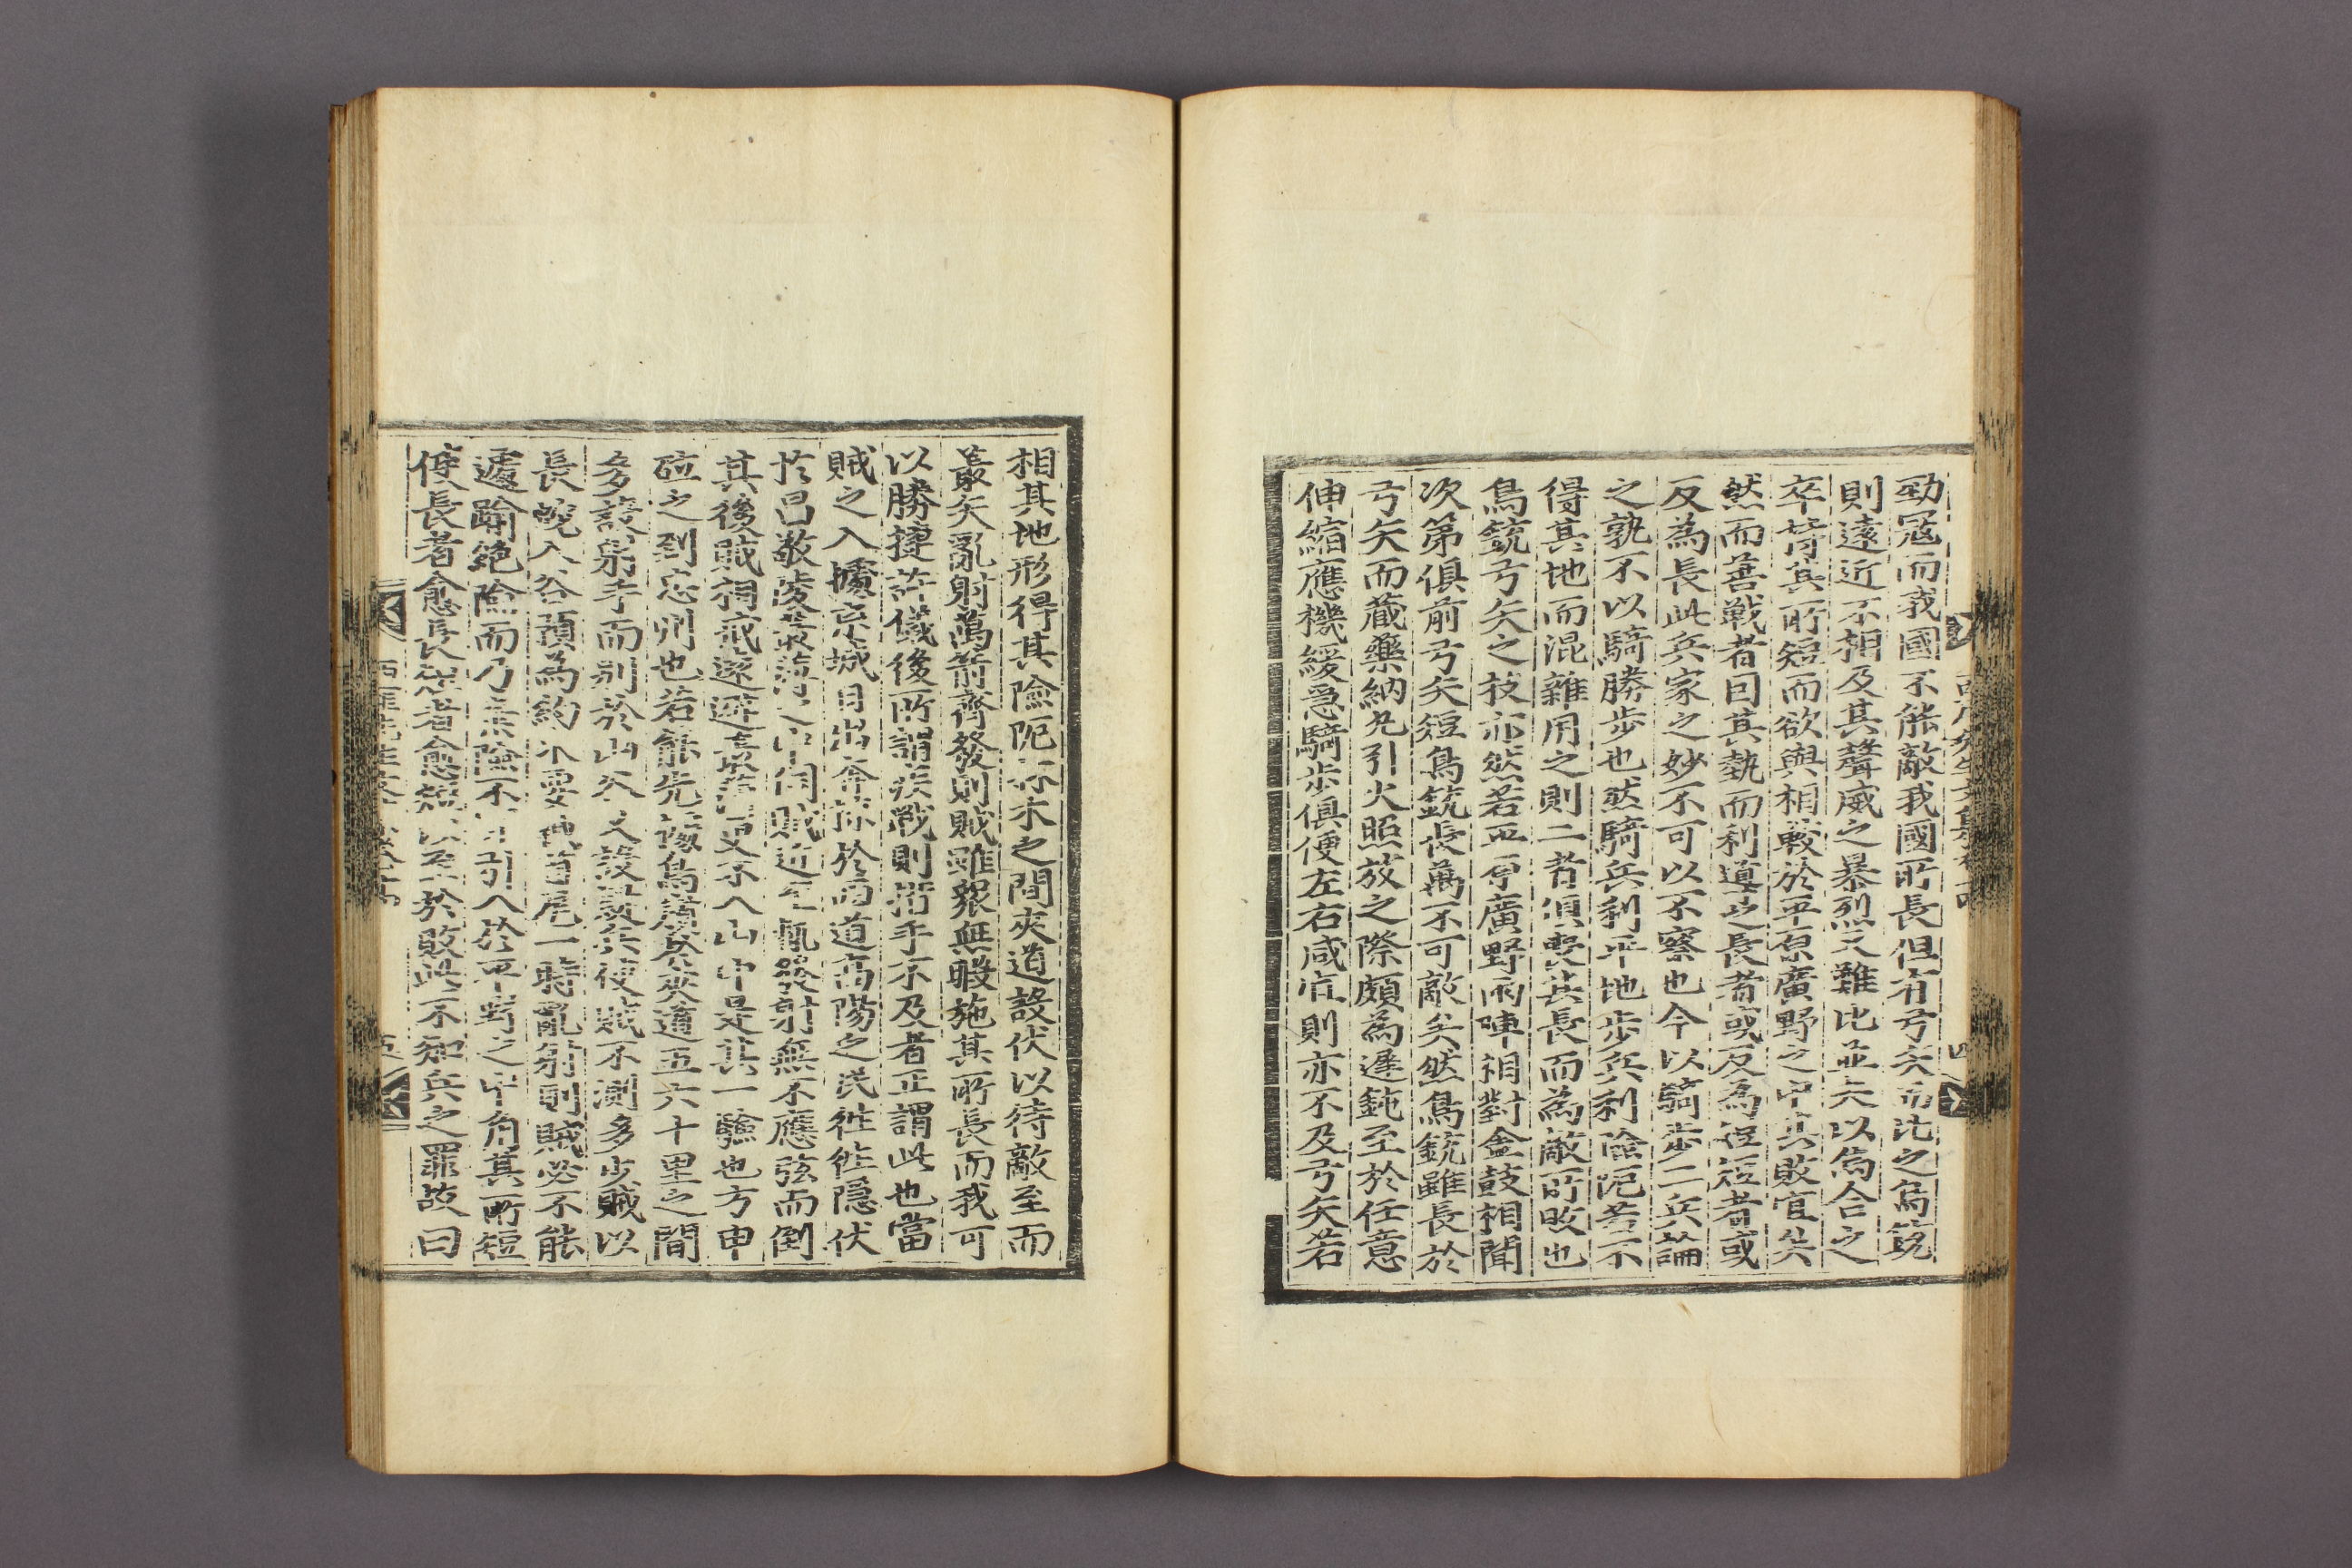 勁寇而我國不能敵我國所長但有弓矢而比之鳥銃
則遠近不相及其聲威之暴烈又難比並夫以烏合之
卒恃其所短而欲與相較於平原廣野之中其敗宜矣
然而善戰者因其勢而利導之長者或反為短短者或
反為長此兵家之妙不可以不察也今以騎步二兵論
之孰不以騎勝步也然騎兵利平地步兵利險阨若不
得其地而混雜用之則二者須喪其長而為敵所敗也
鳥銃弓矢之技亦然若平原廣野兩陣相對金鼓相聞
次第俱前弓矢短鳥銃長萬不可敵矣然鳥銃雖長於
弓矢而藏藥納丸引火照放之際頗為遲鈍至於任意
伸縮應機緩急騎步俱便左右咸宜則亦不及弓矢若
四
相其地形得其險阨林木之間夾道設伏以待敵至而
叢矢亂射萬箭齊發則賊雖衆無暇施其所長而我可
以勝捷許儀後所謂挨戰則措手不及者正謂此也當
賊之入據京城日出奔掠於兩道高陽之民徃徃隱伏
於昌敬陵叢薄之中伺賊近至輒發射無不應弦而倒
其後賊相戒遂避叢薄又不入山中是其一驗也方申
砬之到忠州也若能先據鳥嶺夾道五六十里之間
多設射手而別於山谷又設疑兵使賊不測多少賊以
長蛇入谷預為約束要截首尾一時亂射則賊必不能
遽踰絶險而乃棄險不守引入於平野之中角其所短
使長者愈長短者愈短以至於敗此不知兵之罪故曰